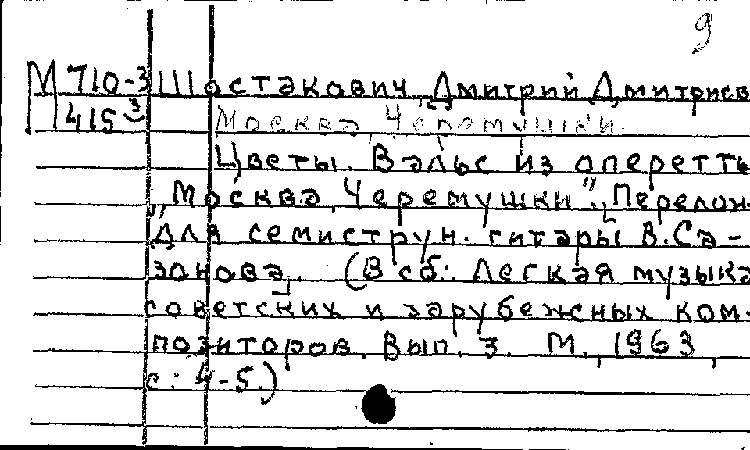 9
М 710-3 Шостакович, Дмитрий Дмитриев
415 3 Москва, Черемушки.
Цветы. Вальс из оперетты
„Москва, Черемушки". [Перелож.
для семиструн. гитары В. Са-
зонова]. (В сб: Легкая музыка
советских и зарубежных ком-
позиторов. Вып. 3. М., 1963,
с: 4-5.)